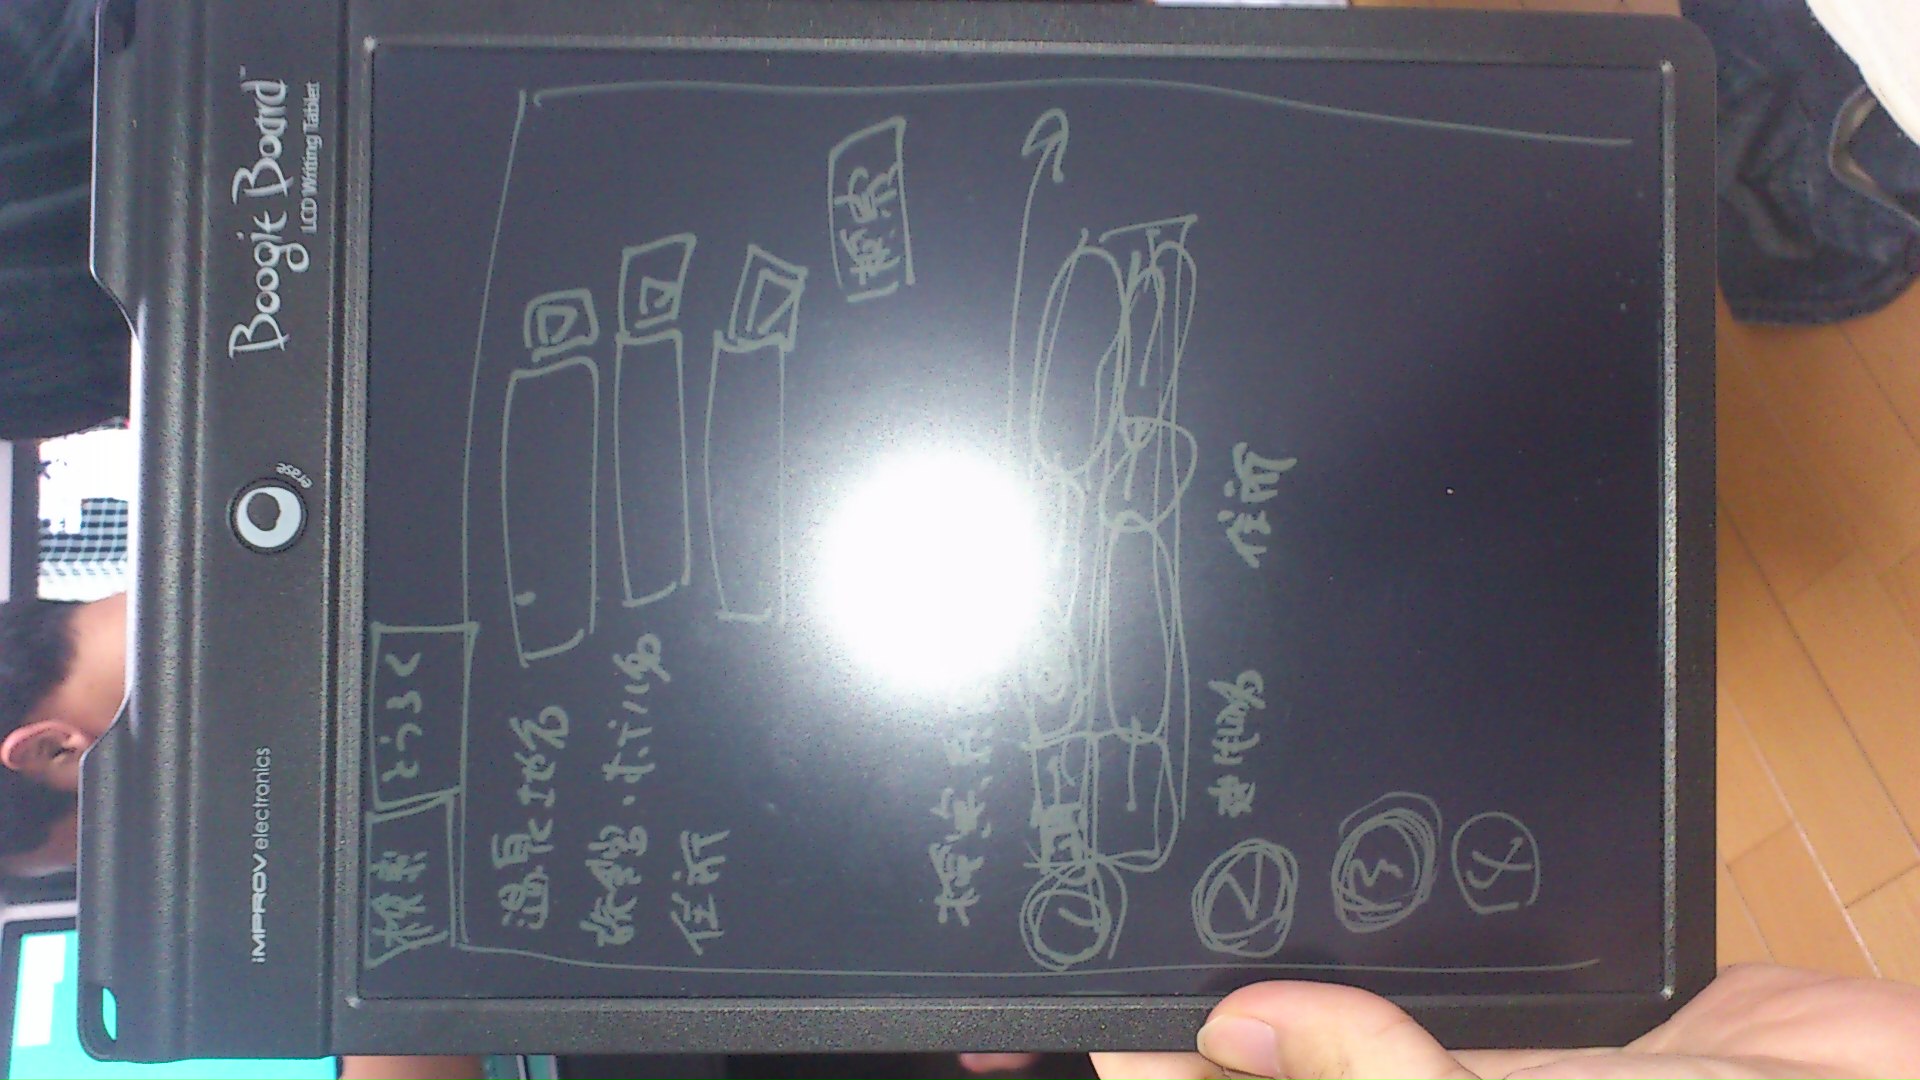 iMPROV electronics
erase
Boogie Board™
LCD Writing Tablet
検索 とうろく
温泉地名
旅館・ホテル名
住所
検索
検索
1
2 建物名 住所
3
4